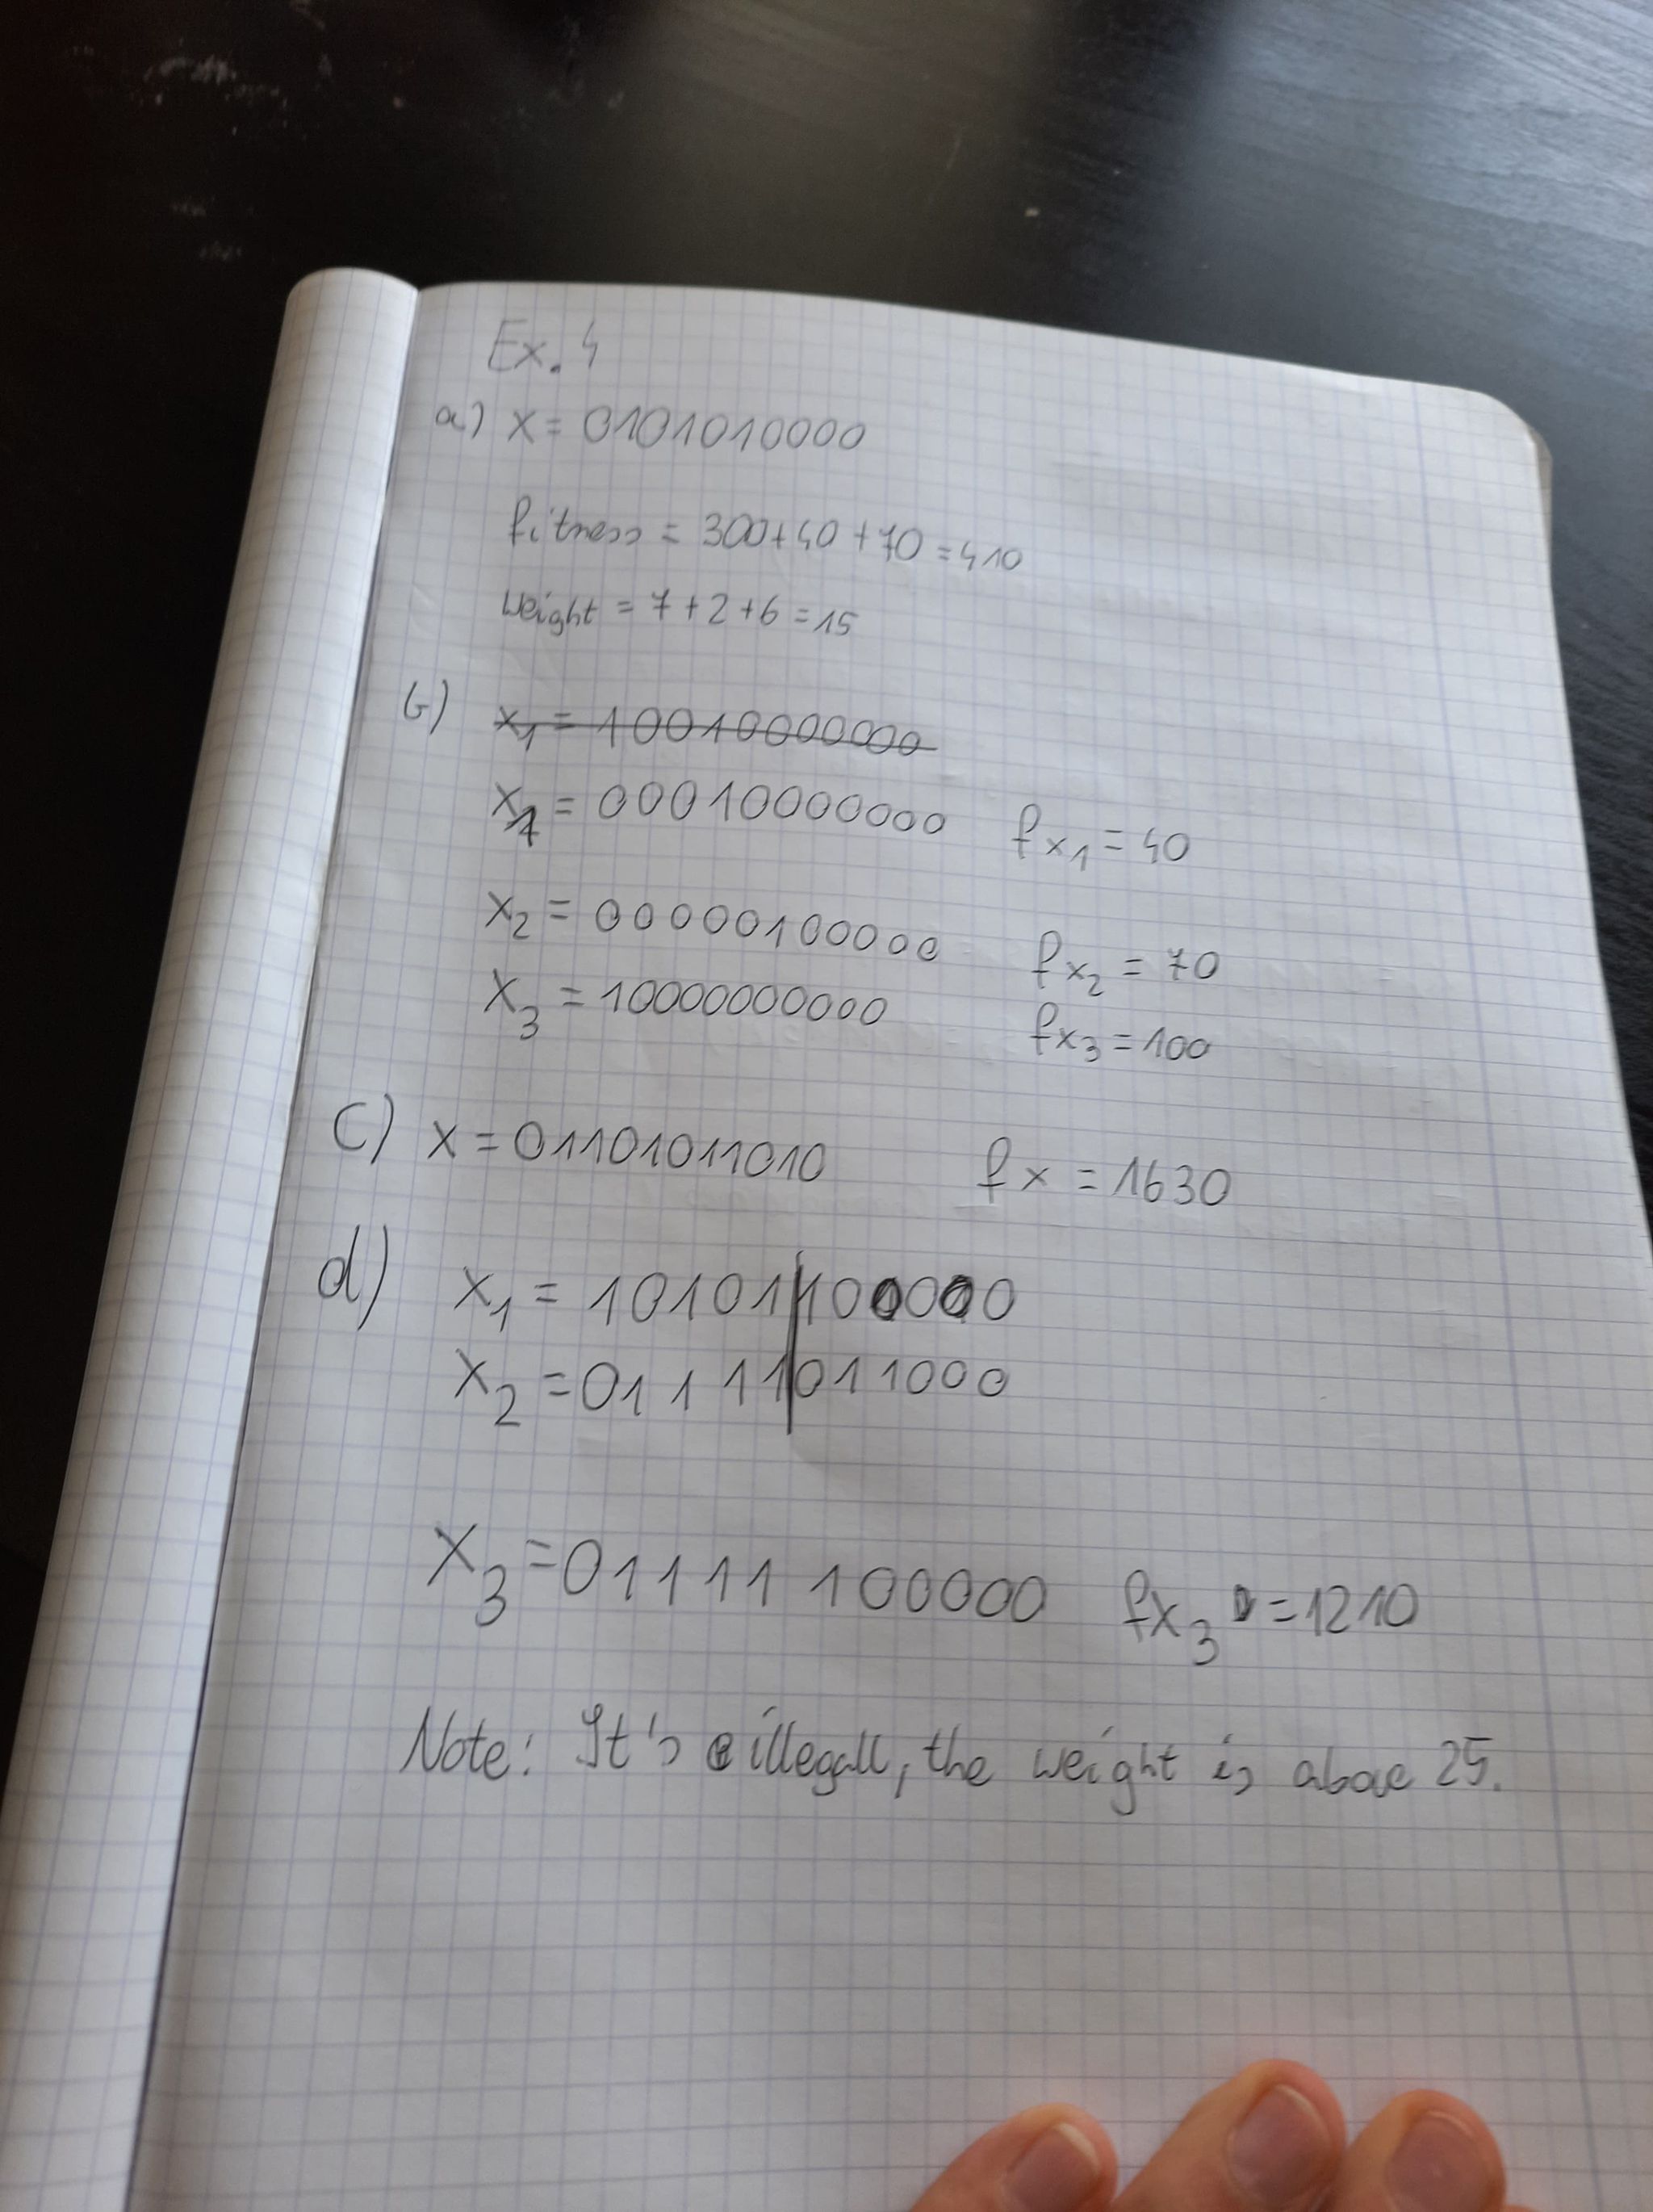 Ex. 4
a) x = 0101010000
fitness = 300+40+70=410
weight = 7+2+6=15
b) x1 = 10010000000
x1 = 00010000000 fx1 = 40
x2 = 00000100000 fx2 = 70
x3 = 10000000000 fx3 = 100
c) x = 01101011010 fx = 1630
d) x1 = 10101|100000
x2 = 01111|011000
x3 = 01111100000 fx3 = 1210
Note: It's illegall, the weight is above 25.